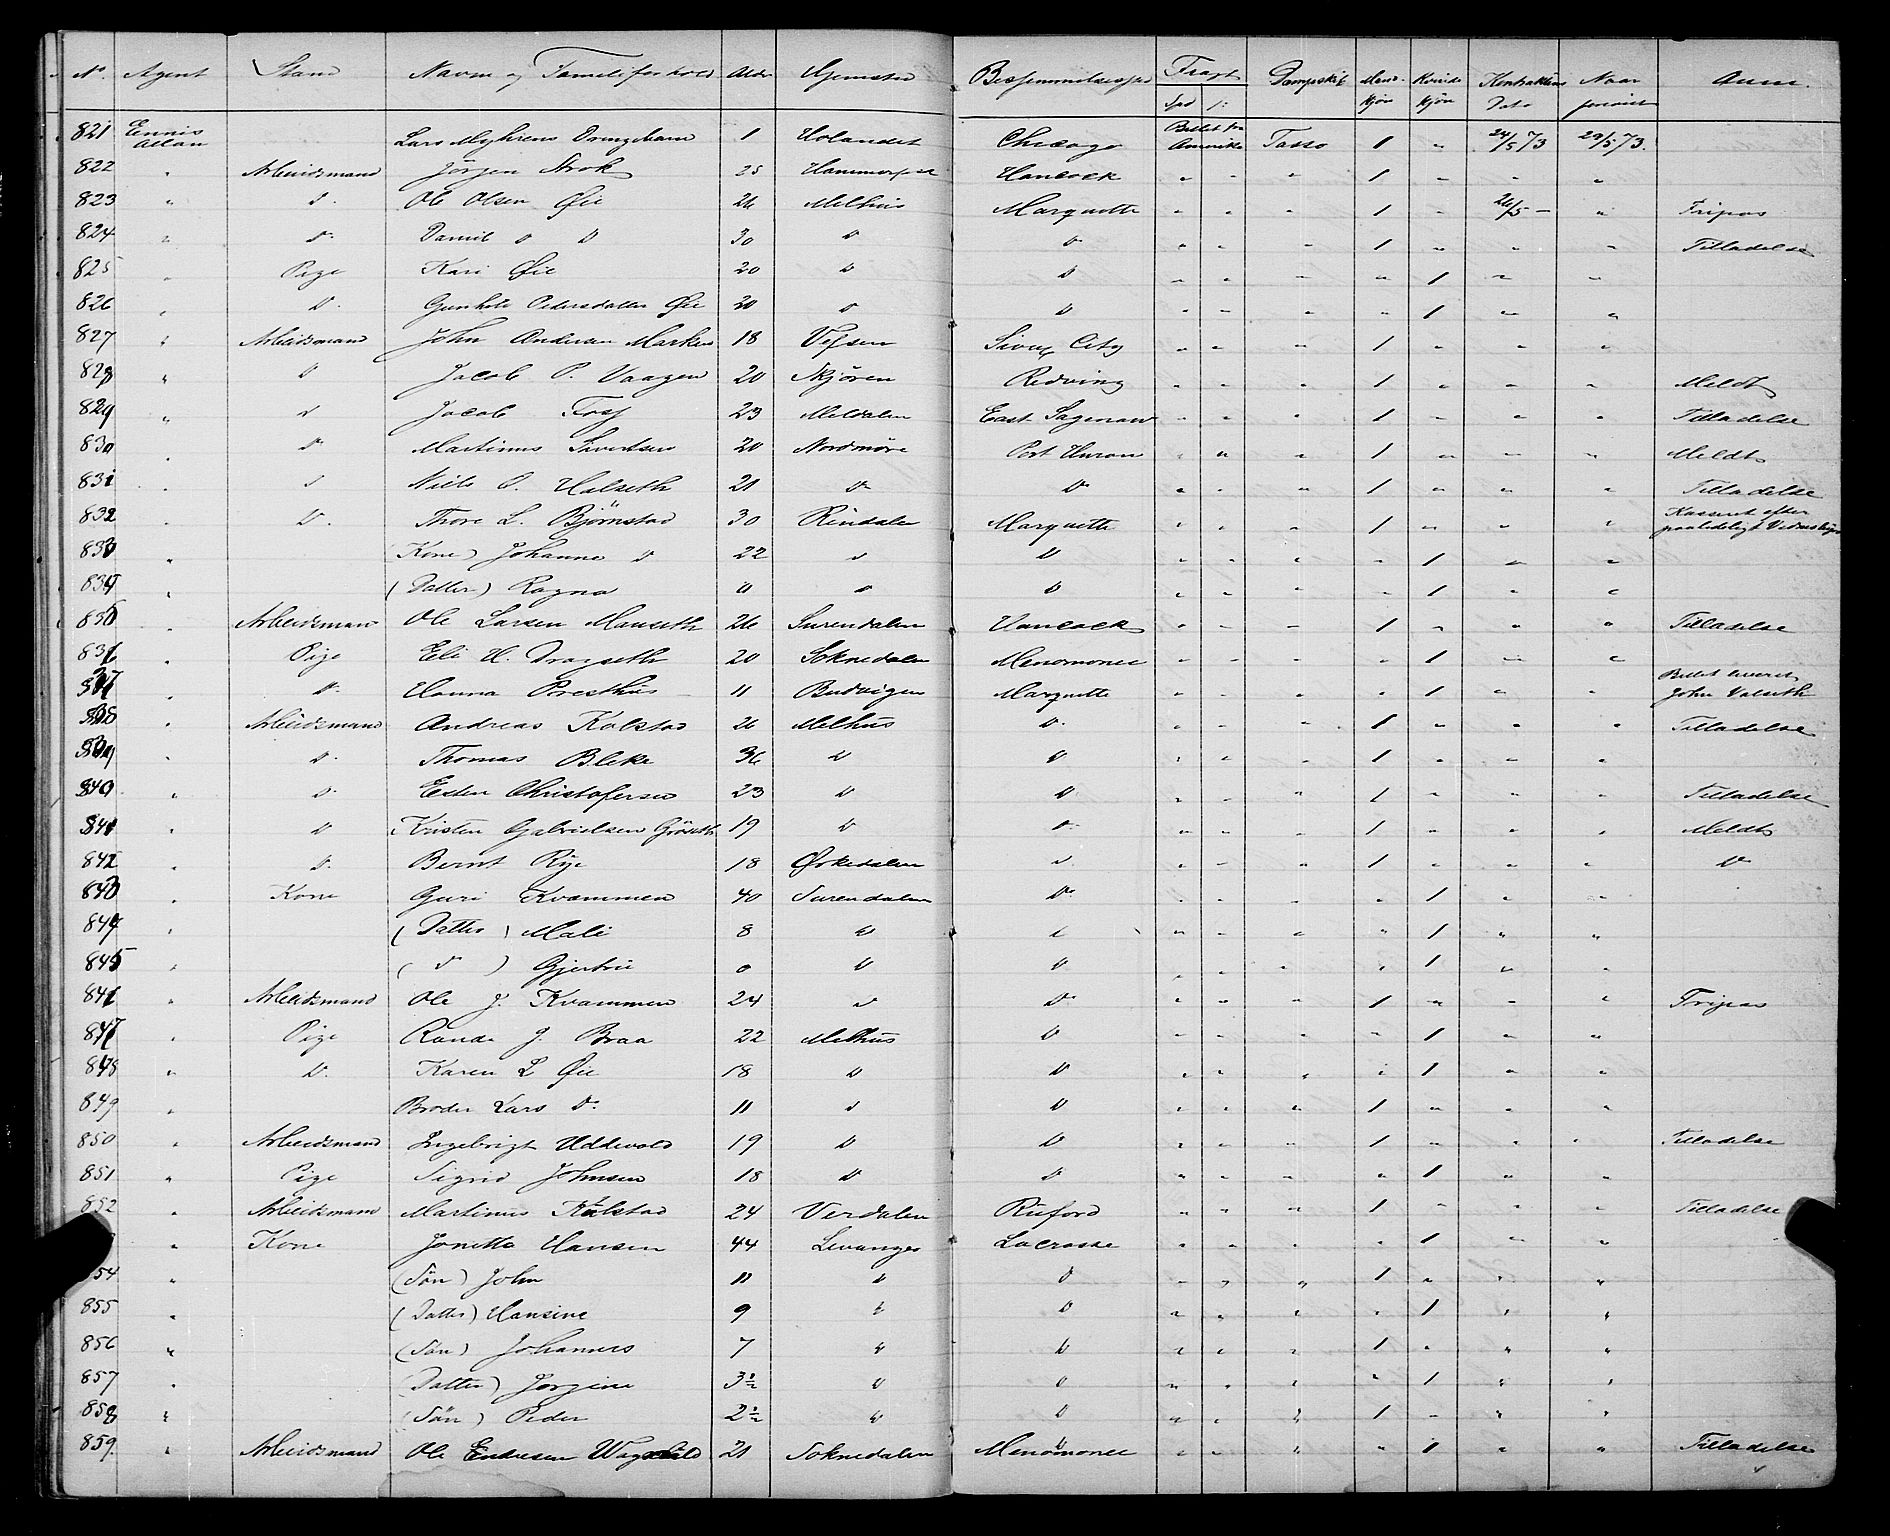 No. Agent Stand Navn og Familieforhold Alder Hjemsted Bestemmelsessted Fragt Spd ſ: Dampskib Mandkjøn Kvindekjøn Kontraktens Dato Naar Anm.
821 Ennis Allan Lars 1 Chicago Billet fra Amerika Tasso 1 " 24/5 73 29/5 73.
822 " Arbeidsmand Jörgen 25 Hammerfest Hancock " " " 1 " " "
823 " D. Ole Olsen Øie 26 Melhus Marquette " " " 1 " 26/5 – " Tripas
824 " D. Daniel D D 30 D D " " " 1 " " " Tilladelse
825 " Pige Kari Øie 20 D D " " " " 1 " "
826 " D. Pedersdatter Øie 20 D D " " " " 1 " "
827 " Arbeidsmand John Andersen 18 Vefsen Sioux City " " " 1 " " "
828 " D Jacob P. Vaagen 20 Redving " " " 1 " " " Meldt
829 " D Jacob Foss 23 Meldalen East Sagenaw " " " 1 " " " Tilladelse
830 " D. Martinus Sivertsen 20 Nordmöre Port Huron " " " 1 " " " Meldt
831 " D Niels O. Halseth 21 D. D. " " " 1 " " " Tilladelse
832 " D. Thore L. Bjørnstad 30 Rindalen Marquette " " " 1 " " " Kasseret efter
833 " (Kone) Johanne D 22 D D " " " " 1 " "
834 " (Datter) Ragna 0 D D " " " " 1 " "
835 " Arbeidsmand Ole Larsen 26 Surendalen Hancock " " " 1 " " " Tilladelse
836 " Pige Eli H. Dragseth 20 Soknedalen Menomonee " " " " 1 " "
837 " D. Hanna 11 Budvigen Marquette " " " " 1 " " Billet John
838 " Arbeidsmand Andreas Kalstad 26 Melhus D. " " " 1 " " " Tilladelse
839 " D. Thomas Bleke 36 D D " " " 1 " " "
840 " D. Esten Christofersen 23 D D " " " 1 " " " Tilladelse
841 " D Kristen Gabrielsen 19 D D. " " " 1 " " " Meldt
842 " D. Bernt Rye 18 Ørkedalen D " " " 1 " " " D
843 " Kone Guri Kvammen 40 Surendalen D. " " " " 1 " "
844 " (Datter) Mali 8 D D " " " " 1 " "
845 " ( D ) Gjertrü 0 D D " " " " 1 " "
846 " Arbeidsmand Ole J. Kvammen 24 D D. " " " 1 " " " Tripas
847 " Pige Rande J. Braa 22 Melhus D " " " " 1 " "
848 " D. Karen L Øie 18 D D " " " " 1 " "
849 " Broder Lars D. 11 D D " " " 1 " " "
850 " Arbeidsmand Ingebrigt Uddevold 19 D D " " " 1 " " " Tilladelse
851 " Pige Sigrid Johnsen 18 D D " " " " 1 " "
852 " Arbeidsmand Martinus Kalstad 24 Verdalen Ruford " " " 1 " " " Tilladelse
" Kone Jonetta Hansen 44 Levanger Lacrosse " " " " 1 " "
854 " (Sön) John 11 D D " " " 1 " " "
855 " (Datter) Hansine 9 D D " " " " 1 " "
856 " (Sön) Johannes 7 D D " " " 1 " " "
857 " (Datter) Jorgine 3½ D D " " " " 1 " "
858 " (Sön) Peder 2½ D D " " " 1 " " "
859. " Arbeidsmand Ole Endresen 21 Soknedalen Menomonee " " " " 1 " " Tilladelse